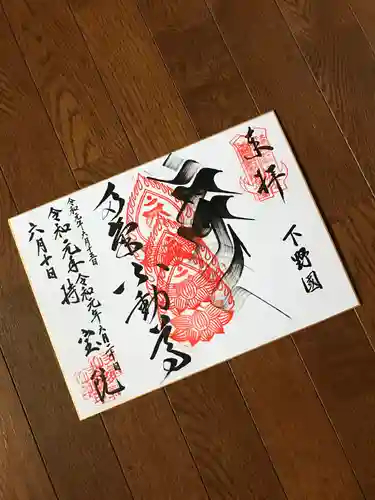 奉拝
下野國
多氣不動尊
令和元年六月五日
令和元年六月二十日
令和元年 持宝院
六月十日